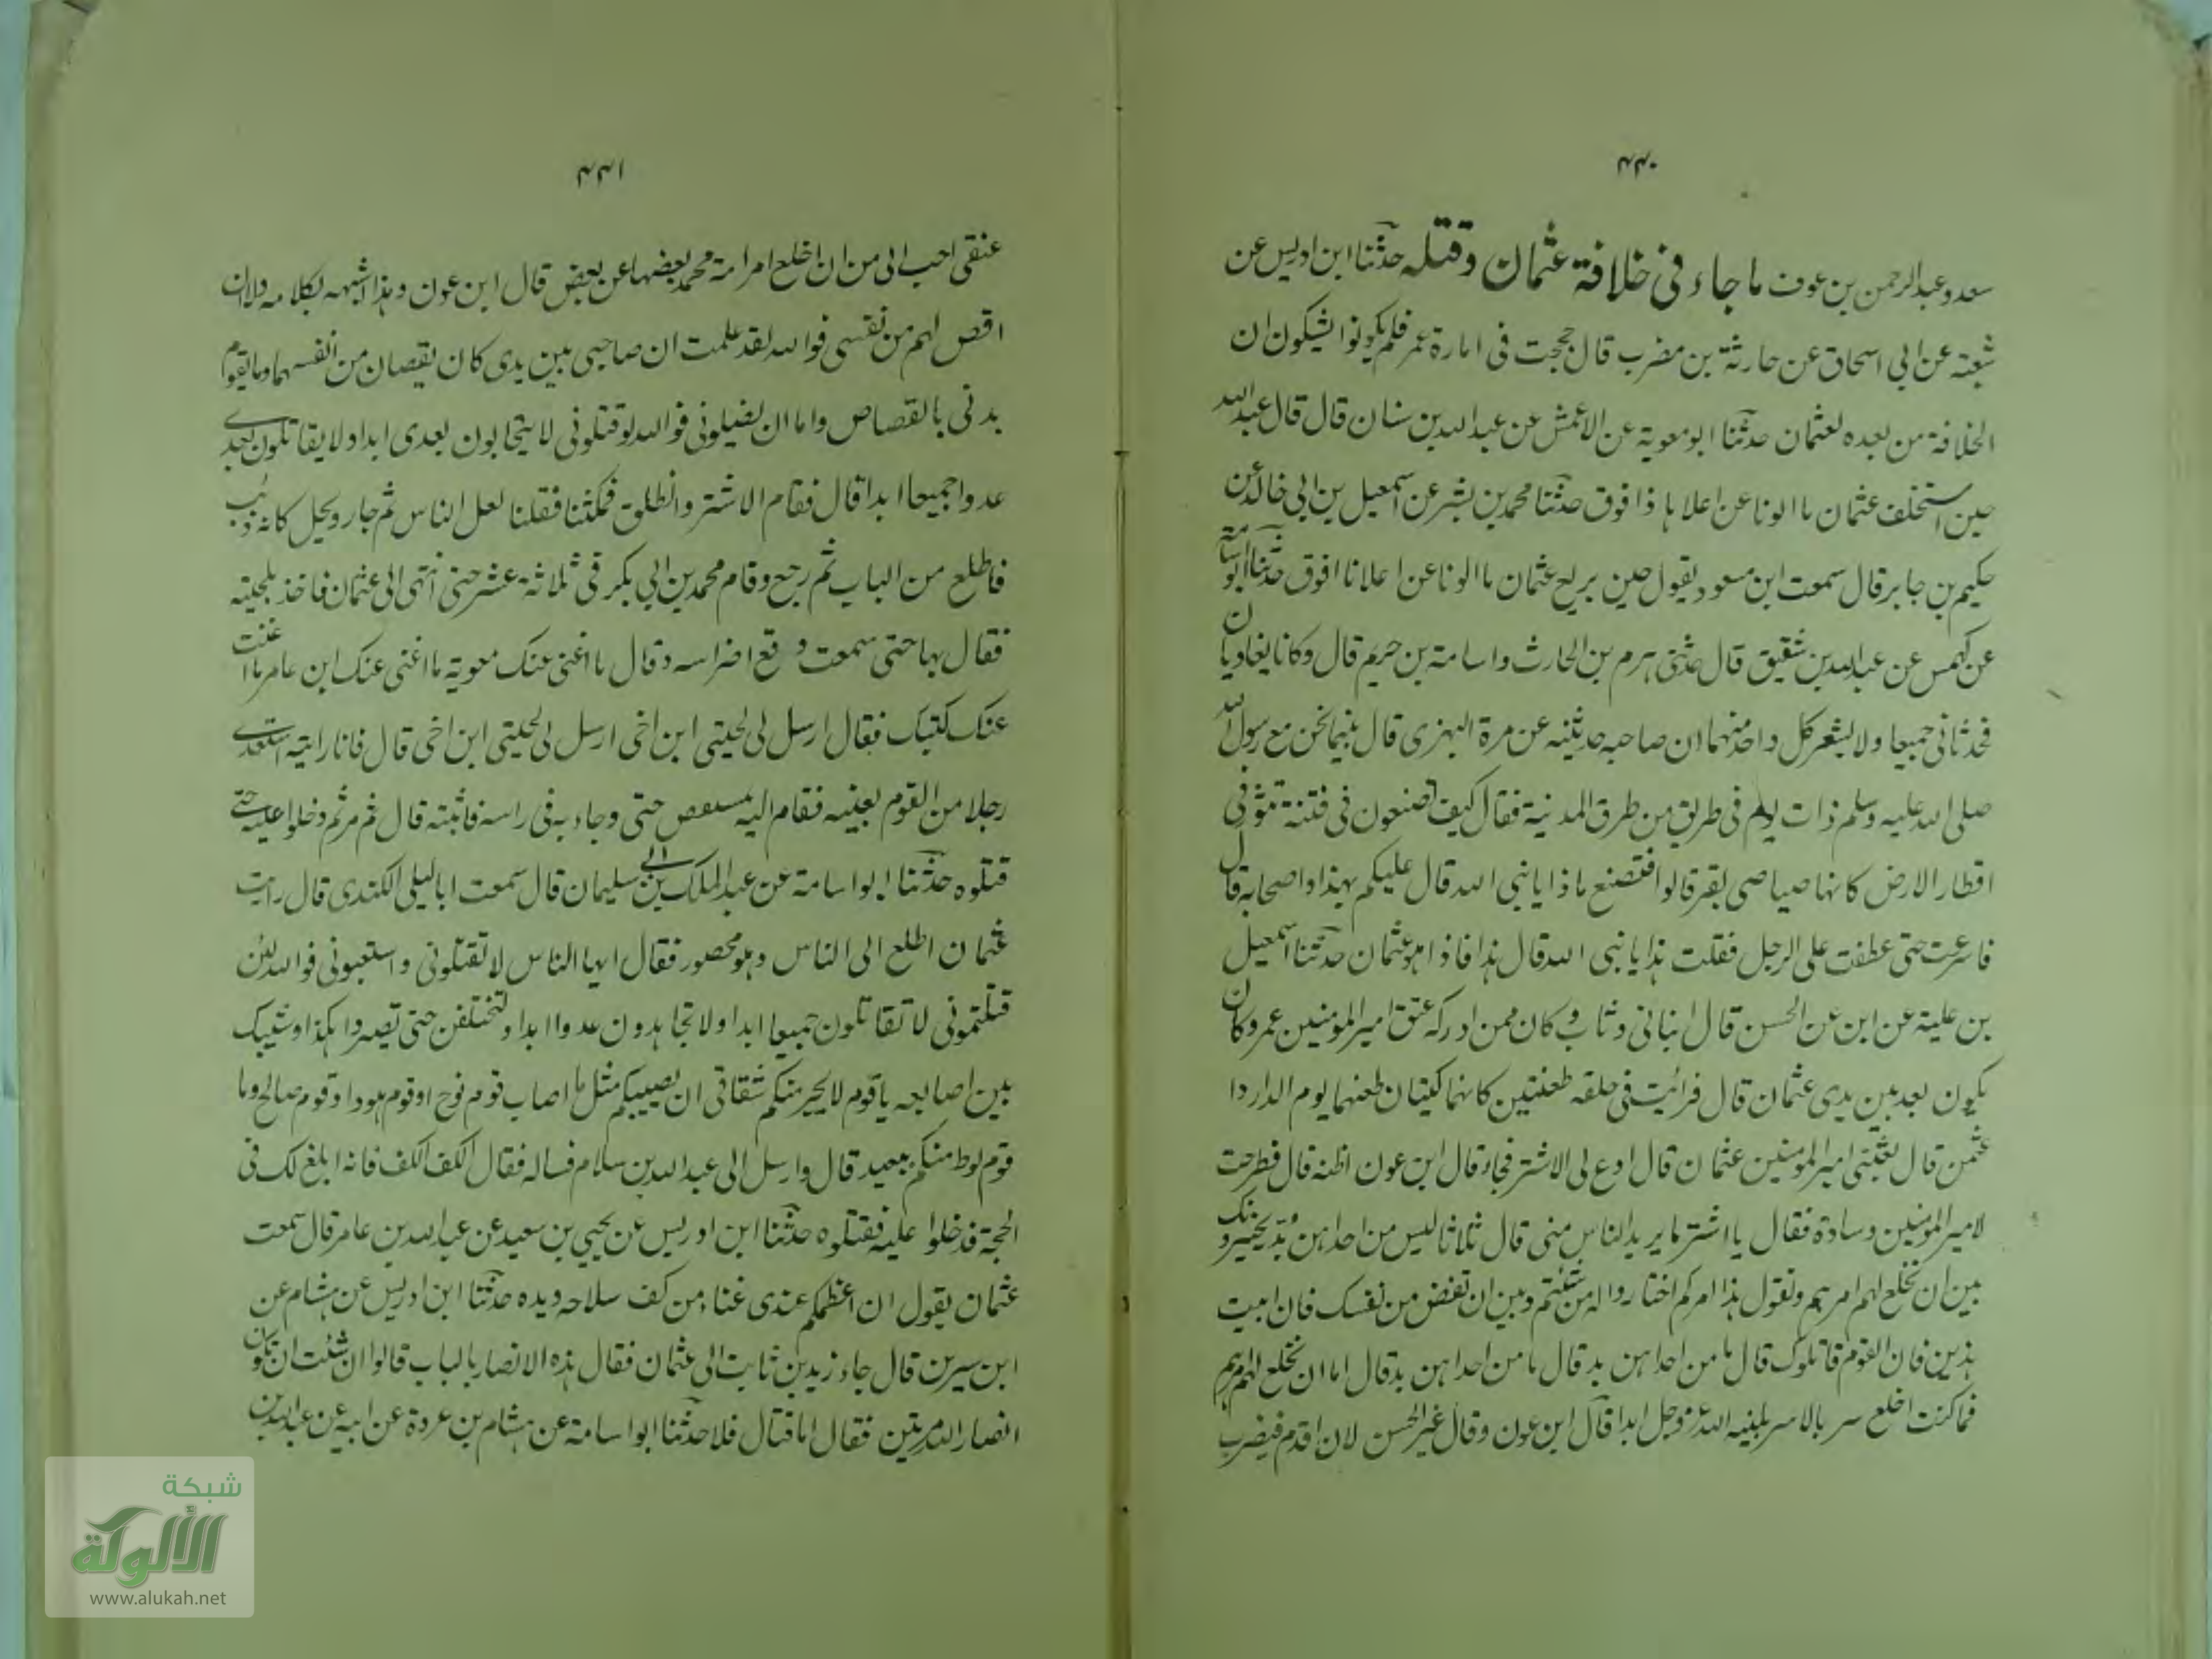 ۴۴۰
سعد وعبد الرحمن بن عوف ما جاء في خلافة عثمان وقتله حدثنا ابن ادريس عن
شعبة عن ابي اسحاق عن حارثة بن مضرب قال حججت في امارة عمر فلم يكونوا يشكون ان
الخلافة من بعده لعثمان حدثنا ابو معوية عن الاعمش عن عبد الله بن سنان قال قال عبد الله
حين استخلف عثمان ما الونا عن اعلاها ذا فوق حدثنا محمد بن بشر عن اسمعيل بن ابي خالد عن
حكيم بن جابر قال سمعت ابن مسعود يقول حين بويع عثمان ما الونا عن اعلانا افوق حدثنا ابو اسامة
عن كهمس عن عبد الله بن شقيق قال حدثني هرم بن الحارث واسامة بن خريم قال وكانا يغاديان
فحدثاني جميعا ولا يشعر كل واحد منهما ان صاحبه حدثنيه عن مرة البهزي قال بينما نحن مع رسول الله
صلى الله عليه وسلم ذات يوم في طريق من طرق المدينة فقال كيف تصنعون في فتنة تثور في
اقطار الارض كانها صياصي بقر قالوا فنصنع ماذا يا نبي الله قال عليكم بهذا واصحابه قال
فاسرعت حتى عطفت على الرجل فقلت هذا يا نبي الله قال هذا فاذا هو عثمان حدثنا اسمعيل
بن علية عن ابن عن الحسن قال انباني وثاب وكان ممن ادركه عتق امير المومنين عمر وكان
يكون بعد بين يدي عثمان قال فرائيت في حلقه طعنتين كانهما كيتان طعنهما يوم الدار دا
عثمن قال بعثني امير المومنين عثمان قال ادع لي الاشتر فجاء قال ابن عون اظنه قال فطرحت
لامير المومنين وسادة فقال يا اشتر ما يريد الناس مني قال ثلاثا ليس من احداهن بد يخيرونك
بين ان تخلع لهم امرهم وتقول هذا امركم اختاروا له من شئتم وبين ان تقص من نفسك فان ابيت
هذين فان القوم قاتلوك قال ما من احداهن بد قال ما من احداهن بد قال اما ان تخلع لهم امرهم
فما كنت اخلع سر بالا سر بلنيه الله عز وجل ابدا قال ابن عون وقال غير الحسن لان اقدم فيضرب
۴۴۱
عنقي احب الي من ان اخلع امر امة محمد بعضها عن بعض قال ابن عون وهذا اشبه بكلامه ولان
اقص لهم من نفسي فوالله لقد علمت ان صاحبي بين يدي كان يقصان من انفسهما وما يقوم
بدني بالقصاص واما ان يقتلوني فوالله لو قتلوني لا يتحابون بعدي ابدا ولا يقاتلون بعدي
عدوا جميعا ابدا قال فقام الاشتر وانطلق فمكثنا فقلنا لعل الناس ثم جاء رويجل كانه ذئب
فاطلع من الباب ثم رجع وقام محمد بن ابي بكر في ثلاثة عشر حتى انتهى الى عثمان فاخذ بلحيته
فقال بها حتى سمعت وقع اضراسه وقال ما اغنى عنك معوية ما اغنى عنك ابن عامر ما اغنت
عنك كتبك فقال ارسل لي لحيتي ابن اخي ارسل لي لحيتي ابن اخي قال فانا رايته استعدى
رجلا من القوم بعينه فقام اليه بمشقص حتى وجاء به في راسه فاثبته قال ثم مر ثم دخلوا عليه حتى
قتلوه حدثنا ابو اسامة عن عبد الملك بن ابي سليمان قال سمعت ابا ليلى الكندي قال رايت
عثمان اطلع الى الناس وهو محصور فقال ايها الناس لا تقتلوني واستعتبوني فوالله لئن
قتلتموني لا تقاتلون جميعا ابدا ولا تجاهدون عدوا ابدا ولتختلفن حتى تصيروا هكذا وشبك
بين اصابعه يا قوم لا يجرمنكم شقاقي ان يصيبكم مثل ما اصاب قوم نوح او قوم هود او قوم صالح وما
قوم لوط منكم ببعيد قال وارسل الى عبد الله بن سلام فساله فقال الكف الكف فانه ابلغ لك في
الحجة فدخلوا عليه فقتلوه حدثنا ابن ادريس عن يحيي بن سعيد عن عبد الله بن عامر قال سمعت
عثمان يقول ان اعظمكم عندي غناء من كف سلاحه ويده حدثنا ابن ادريس عن هشام عن
ابن سيرين قال جاء زيد بن ثابت الى عثمان فقال هذه الانصار بالباب قالوا ان شئت ان نكون
انصار الله مرتين فقال اما قتال فلا حدثنا ابو اسامة عن هشام بن عروة عن ابيه عن عبد الله بن
شبكة
الألوكة
www.alukah.net